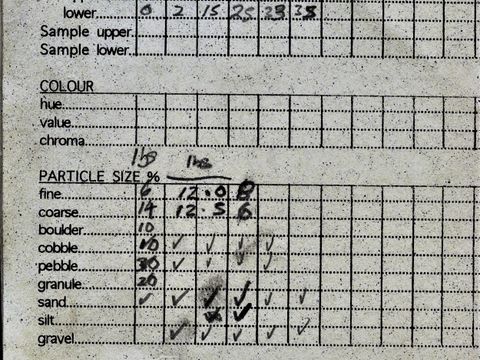 lower 0 2 15 25 28 38
Sample upper
Sample lower
COLOUR
hue
value
chroma
lbs lbs
PARTICLE SIZE %
fine 6 12.0
coarse 14 12.5 6
boulder 10
cobble ✓ ✓ ✓ ✓
pebble ✓ ✓ ✓ ✓
granule 20
sand ✓ ✓ ✓ ✓ ✓ ✓
silt ✓
gravel ✓ ✓ ✓ ✓ ✓